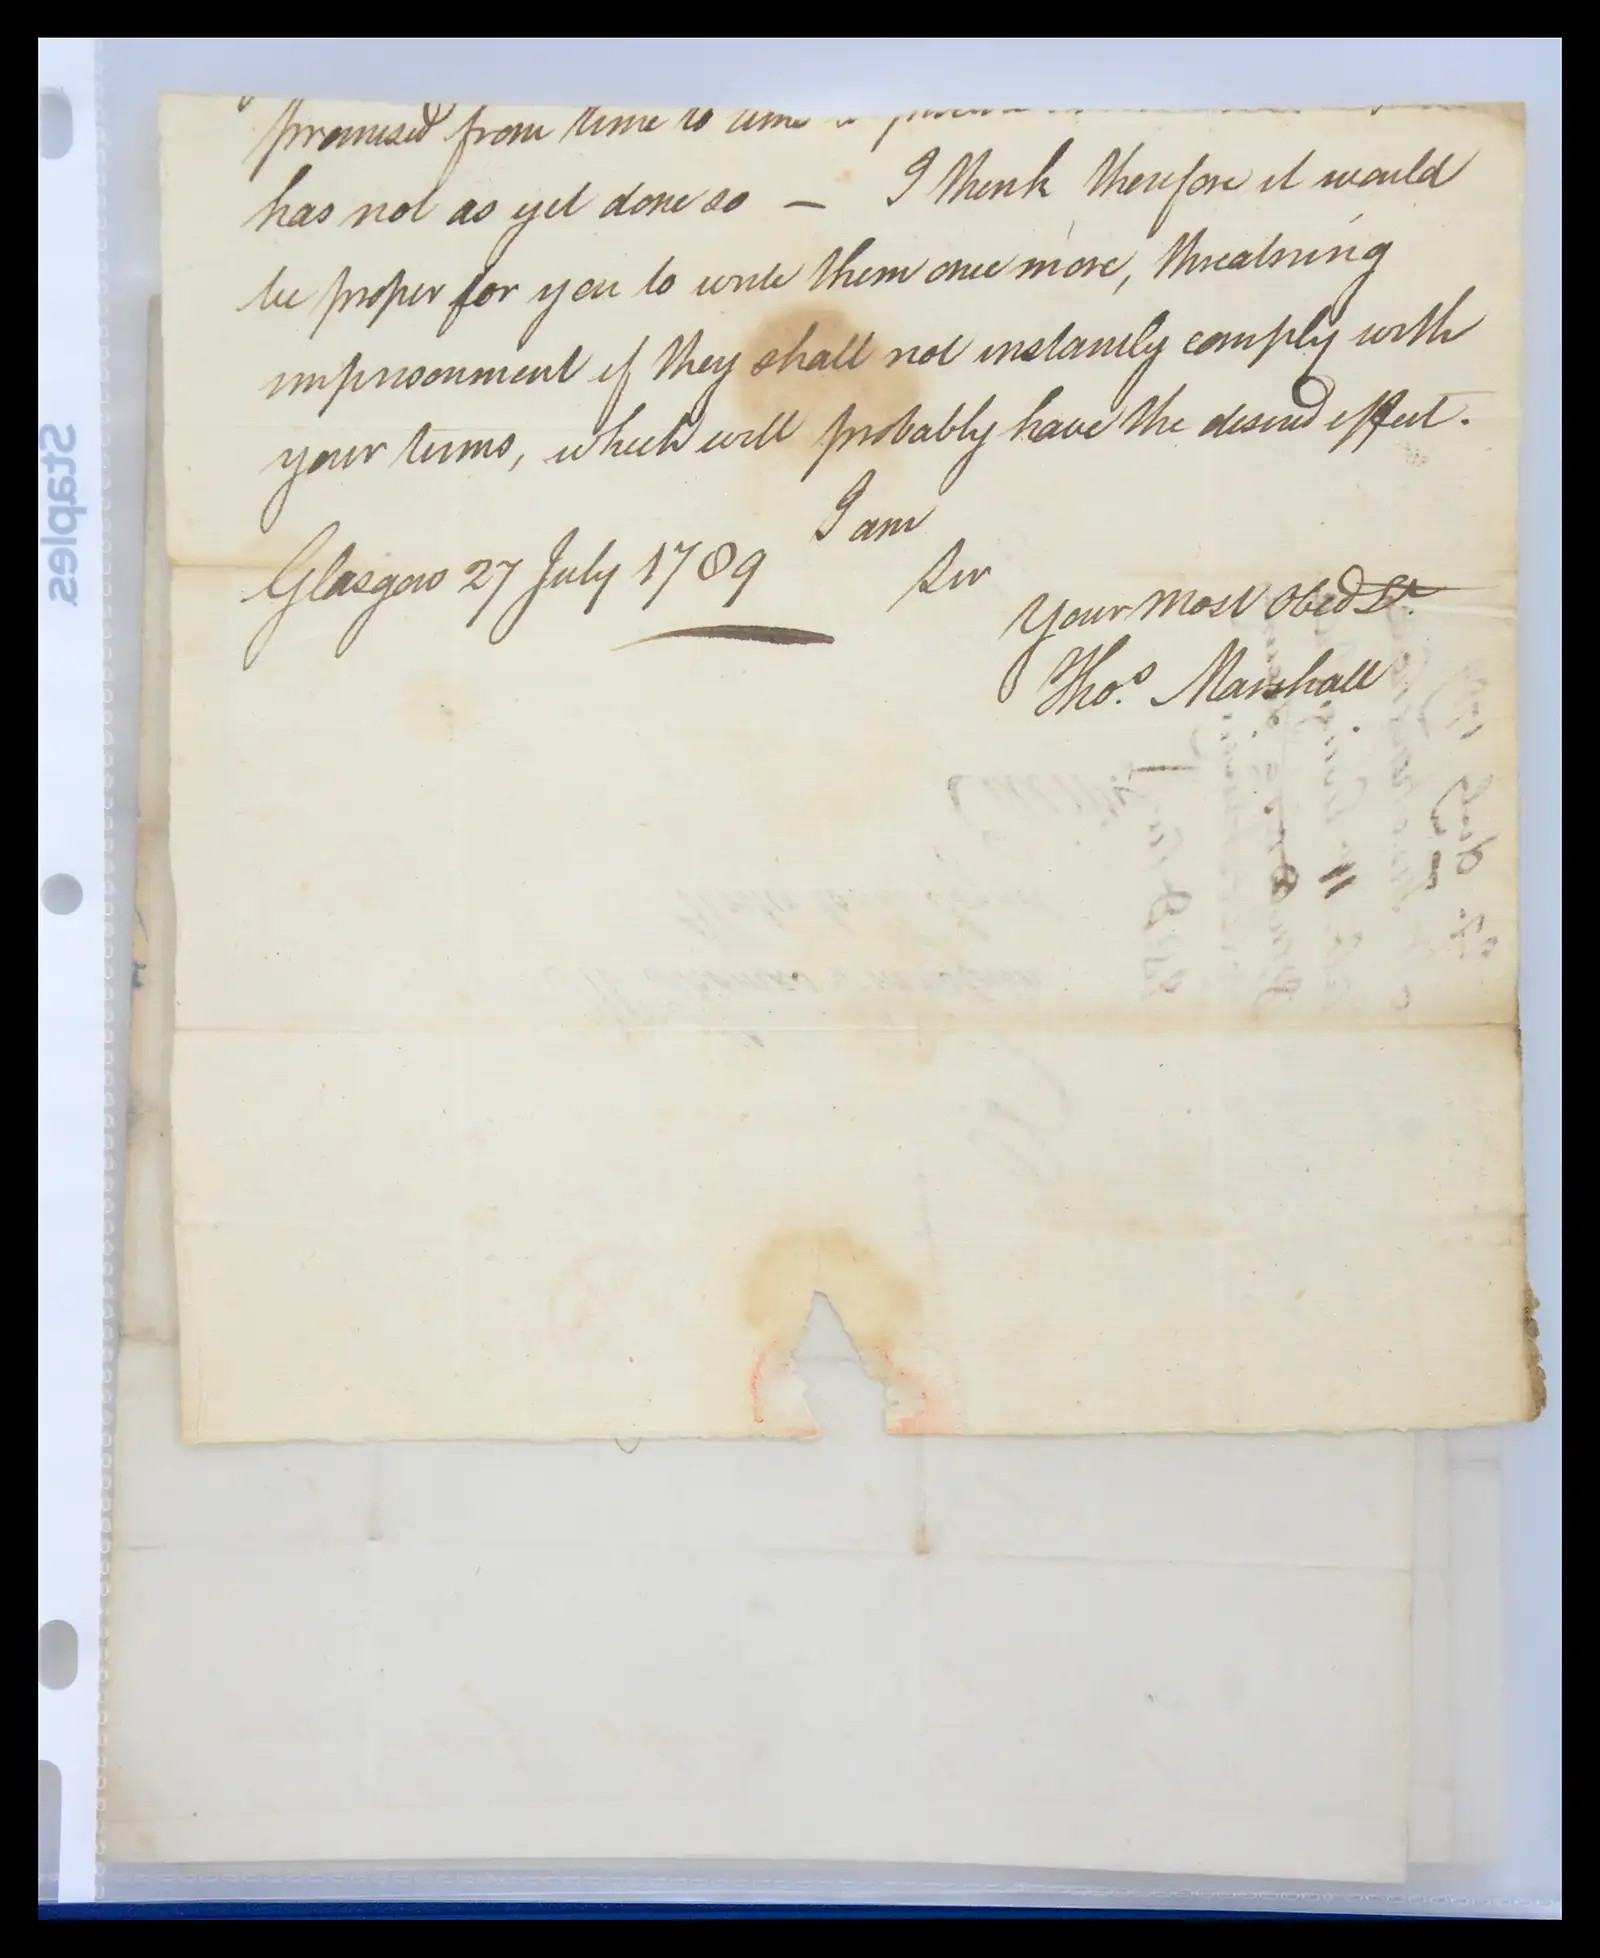 promised from time to time
has not as yet done so — I think therefore it would
be proper for you to write them once more, threatning
imprisonment if they shall not instantly comply with
your terms, which will probably have the desired effect.
I am
Glasgow 27 July 1789
Sir
Your most Obed St.
Thos. Marshall
Staples